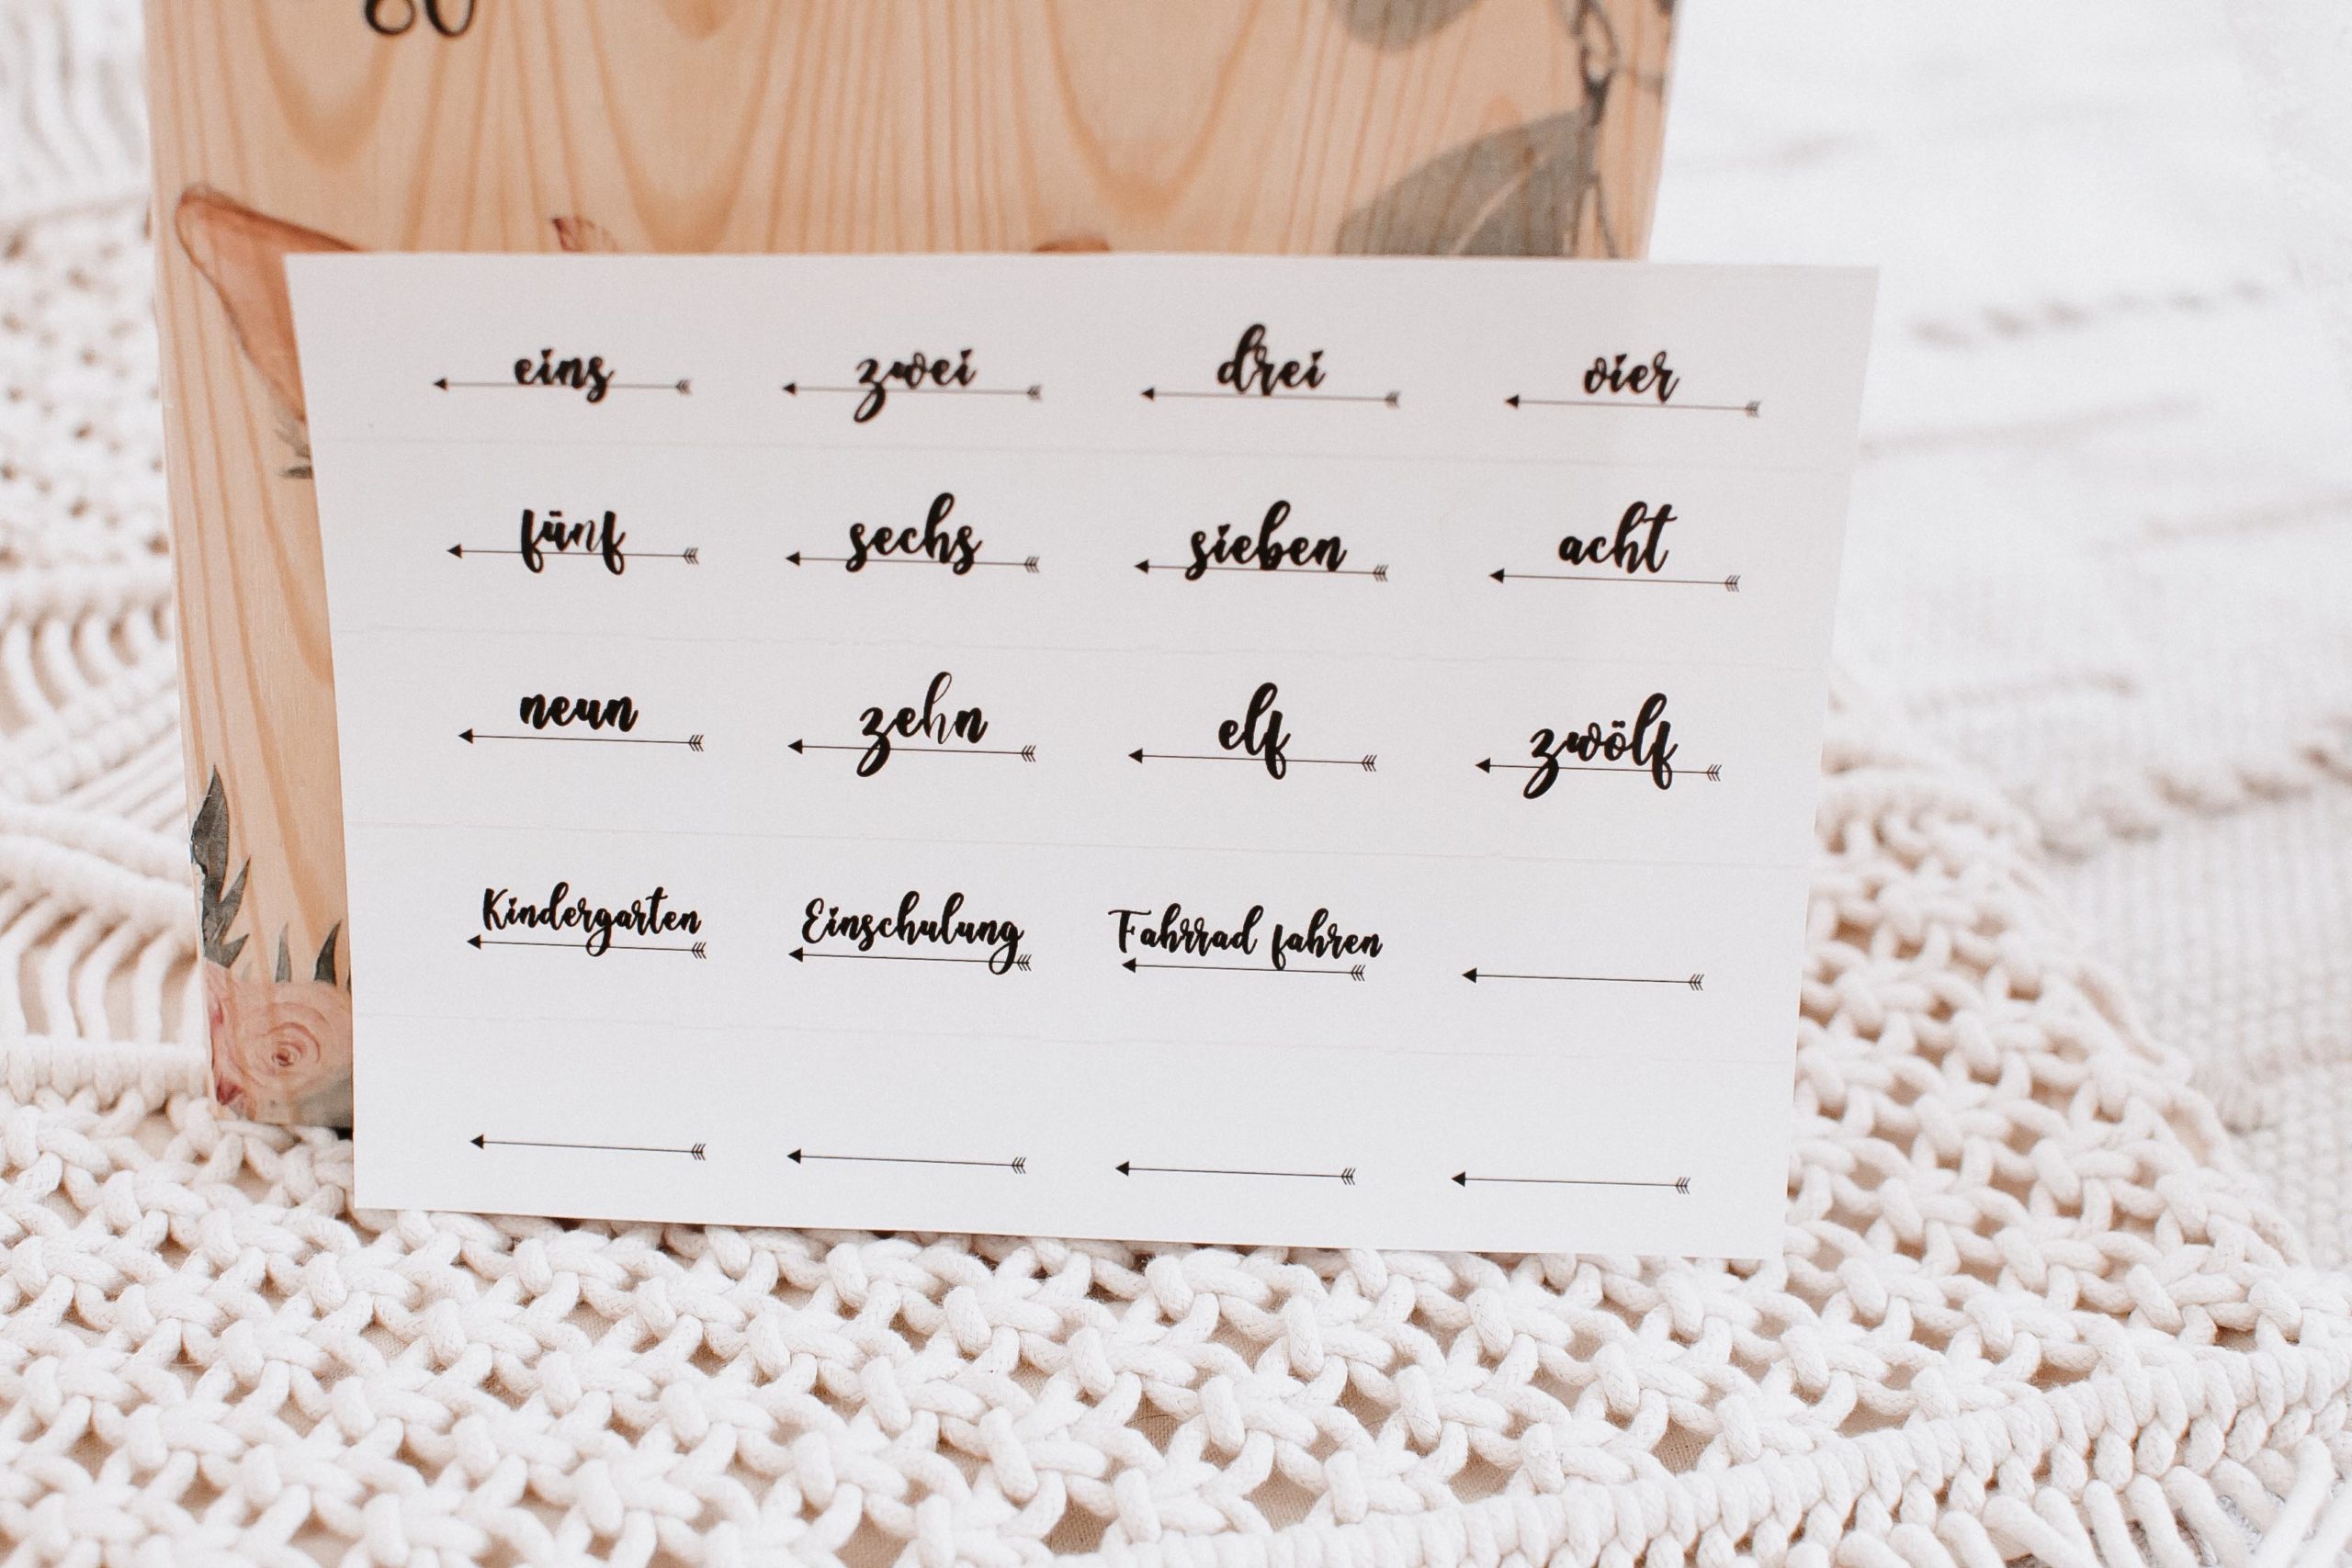 80
eins zwei drei vier
fünf sechs sieben acht
neun zehn elf zwölf
Kindergarten Einschulung Fahrrad fahren